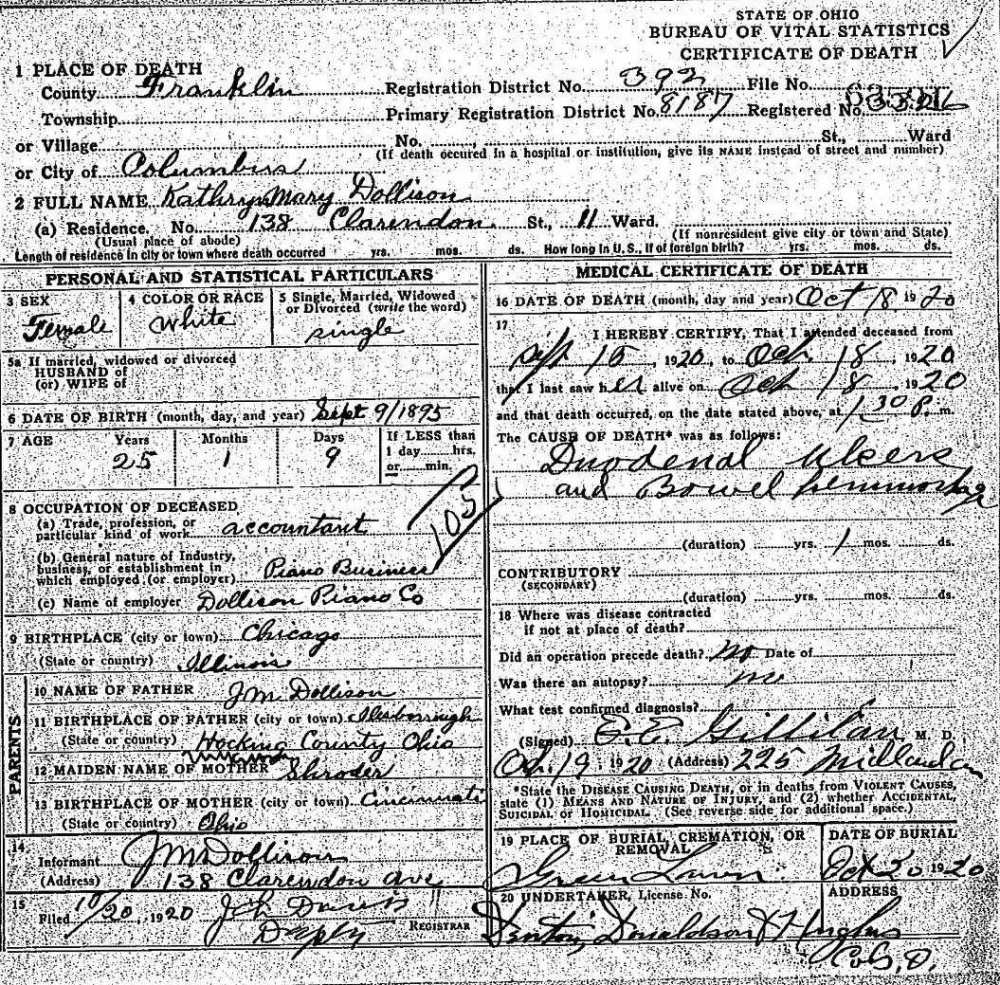 STATE OF OHIO
BUREAU OF VITAL STATISTICS
CERTIFICATE OF DEATH
1 PLACE OF DEATH
County Franklin Registration District No. 392 File No.
Township Primary Registration District No. 8187 Registered No.
or Village No. , St., Ward
(If death occured in a hospital or institution, give its NAME instead of street and number)
or City of Columbus
2 FULL NAME Kathryn Mary Dollison
(a) Residence. No. 138 Clarendon St., 11 Ward.
(Usual place of abode) (If nonresident give city or town and State)
Length of residence in city or town where death occurred yrs. mos. ds. How long in U.S., if of foreign birth? yrs. mos. ds.
PERSONAL AND STATISTICAL PARTICULARS
3 SEX 4 COLOR OR RACE 5 Single, Married, Widowed
or Divorced (write the word)
Female White single
5a If married, widowed or divorced
HUSBAND of
(or) WIFE of
6 DATE OF BIRTH (month, day, and year) Sept 9/1895
7 AGE Years Months Days If LESS than
25 1 9 1 day hrs.
or min.
8 OCCUPATION OF DECEASED
(a) Trade, profession, or
particular kind of work accountant
103
(b) General nature of Industry,
business, or establishment in
which employed (or employer) Piano Business
(c) Name of employer Dollison Piano Co
9 BIRTHPLACE (city or town) Chicago
(State or country) Illinois
PARENTS
10 NAME OF FATHER J M Dollison
11 BIRTHPLACE OF FATHER (city or town)
(State or country) Hocking County Ohio
12 MAIDEN NAME OF MOTHER Shroder
13 BIRTHPLACE OF MOTHER (city or town) Cincinnati
(State or country) Ohio
14
Informant J M Dollison
(Address) 138 Clarendon Ave
15
Filed 10/20, 1920 J h Davis
Deputy REGISTRAR
MEDICAL CERTIFICATE OF DEATH
16 DATE OF DEATH (month, day and year) Oct 18 1920
17
I HEREBY CERTIFY, That I attended deceased from
Sept 15, 1920, to Oct 18, 1920
that I last saw her alive on Oct 18, 1920
and that death occurred, on the date stated above, at 1 30 P. m.
The CAUSE OF DEATH* was as follows:
Duodenal Ulcers
and Bowel hemmorhage
(duration) yrs. 1 mos. ds.
CONTRIBUTORY
(SECONDARY)
(duration) yrs. mos. ds.
18 Where was disease contracted
if not at place of death?
Did an operation precede death? No Date of
Was there an autopsy? no
What test confirmed diagnosis?
(Signed) E. E. Gillilan M. D.
Oct. 19, 1920 (Address) 225 Midland
*State the DISEASE CAUSING DEATH, or in deaths from VIOLENT CAUSES,
state (1) MEANS AND NATURE OF INJURY, and (2) whether ACCIDENTAL,
SUICIDAL or HOMICIDAL. (See reverse side for additional space.)
19 PLACE OF BURIAL, CREMATION, OR
REMOVAL
DATE OF BURIAL
Green Lawn Oct 20 1920
20 UNDERTAKER, License No. ADDRESS
Donaldson & Hughes
Col. O.